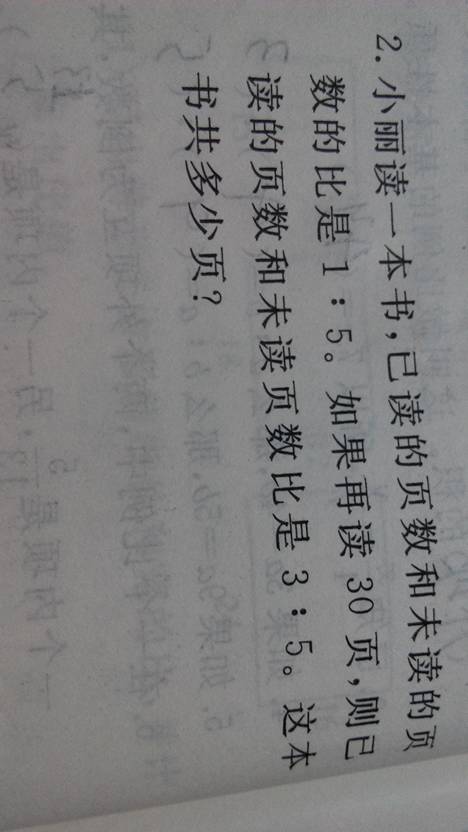 2. 小丽读一本书，已读的页数和未读的页
数的比是 1∶5。如果再读 30 页，则已
读的页数和未读页数比是 3∶5。这本
书共多少页？